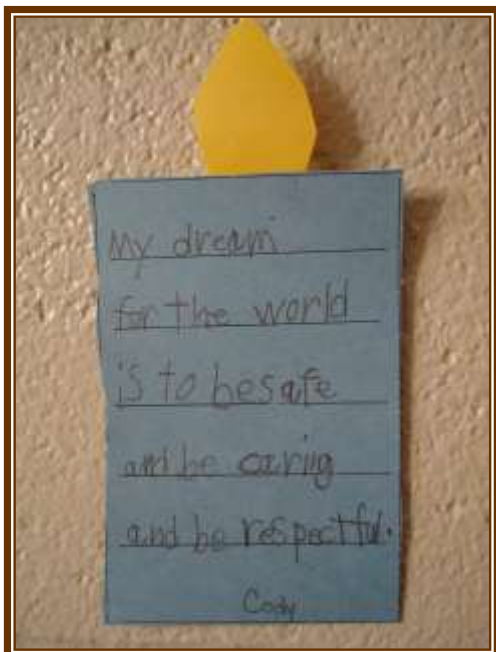 My dream
for the world
is to be safe
and be caring
and be respectful.
Cody